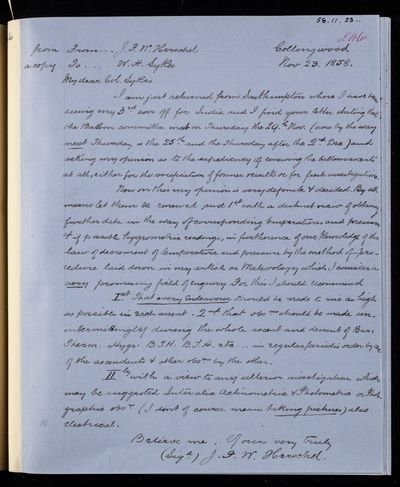 58.11.23
from From... J. F. W. Herschel Collingwood
a copy To... W. H. Sykes Nov 23. 1858.
My dear Col. Sykes
I am just returned from Southampton where I have been
seeing my 3rd son off for India and I find your letter stating that
the Balloon committee met on Thursday the 24th Nov. (now by the way
next Thursday, is the 25th and the Thursday after the 2nd Dec) and
asking my opinion as to the expediency of renewing the balloon ascents
at all, either for the verification of former results or for fresh investigation.
Now on this my opinion is very definite & decided. By all
means let them be renewed and 1st with a distinct view of obtaining
further data in the way of corresponding temperatures and pressures
& if possible hygrometric readings, in furtherance of our knowledge of the
law of decrement of temperature and pressure by the method of pro-
cedure laid down in my article on Meteorology which I consider a
very promising field of enquiry. For this I should recommend
1st That every endeavour should be made to rise as high
as possible in each ascent. 2nd that obsns should be made un-
intermittingly during the whole ascent and descent of Bar:
Therm: Hygr: B.T.H. B.T.H. &c in regular periodic order by one
of the ascendants & other obsns by the other.
IIly with a view to any ulterior investigation which
may be suggested Inter alia Actinometric & Photometric or Photo-
graphic obsns (I don't of course mean taking pictures) also
electrical.
Believe me, Yours very truly
(Sigd) J. F. W. Herschel.